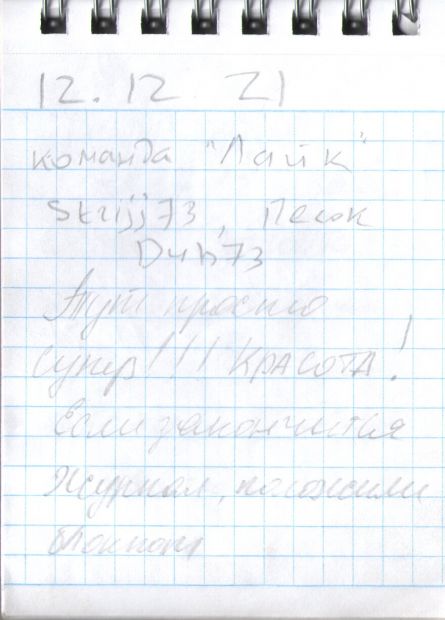 12.12 21
команда "Лайк"
Strijj73, Песок
Dub73
Тут просто
супер!!! КРАСОТА!
Если закончится
журнал, положили
блокнот